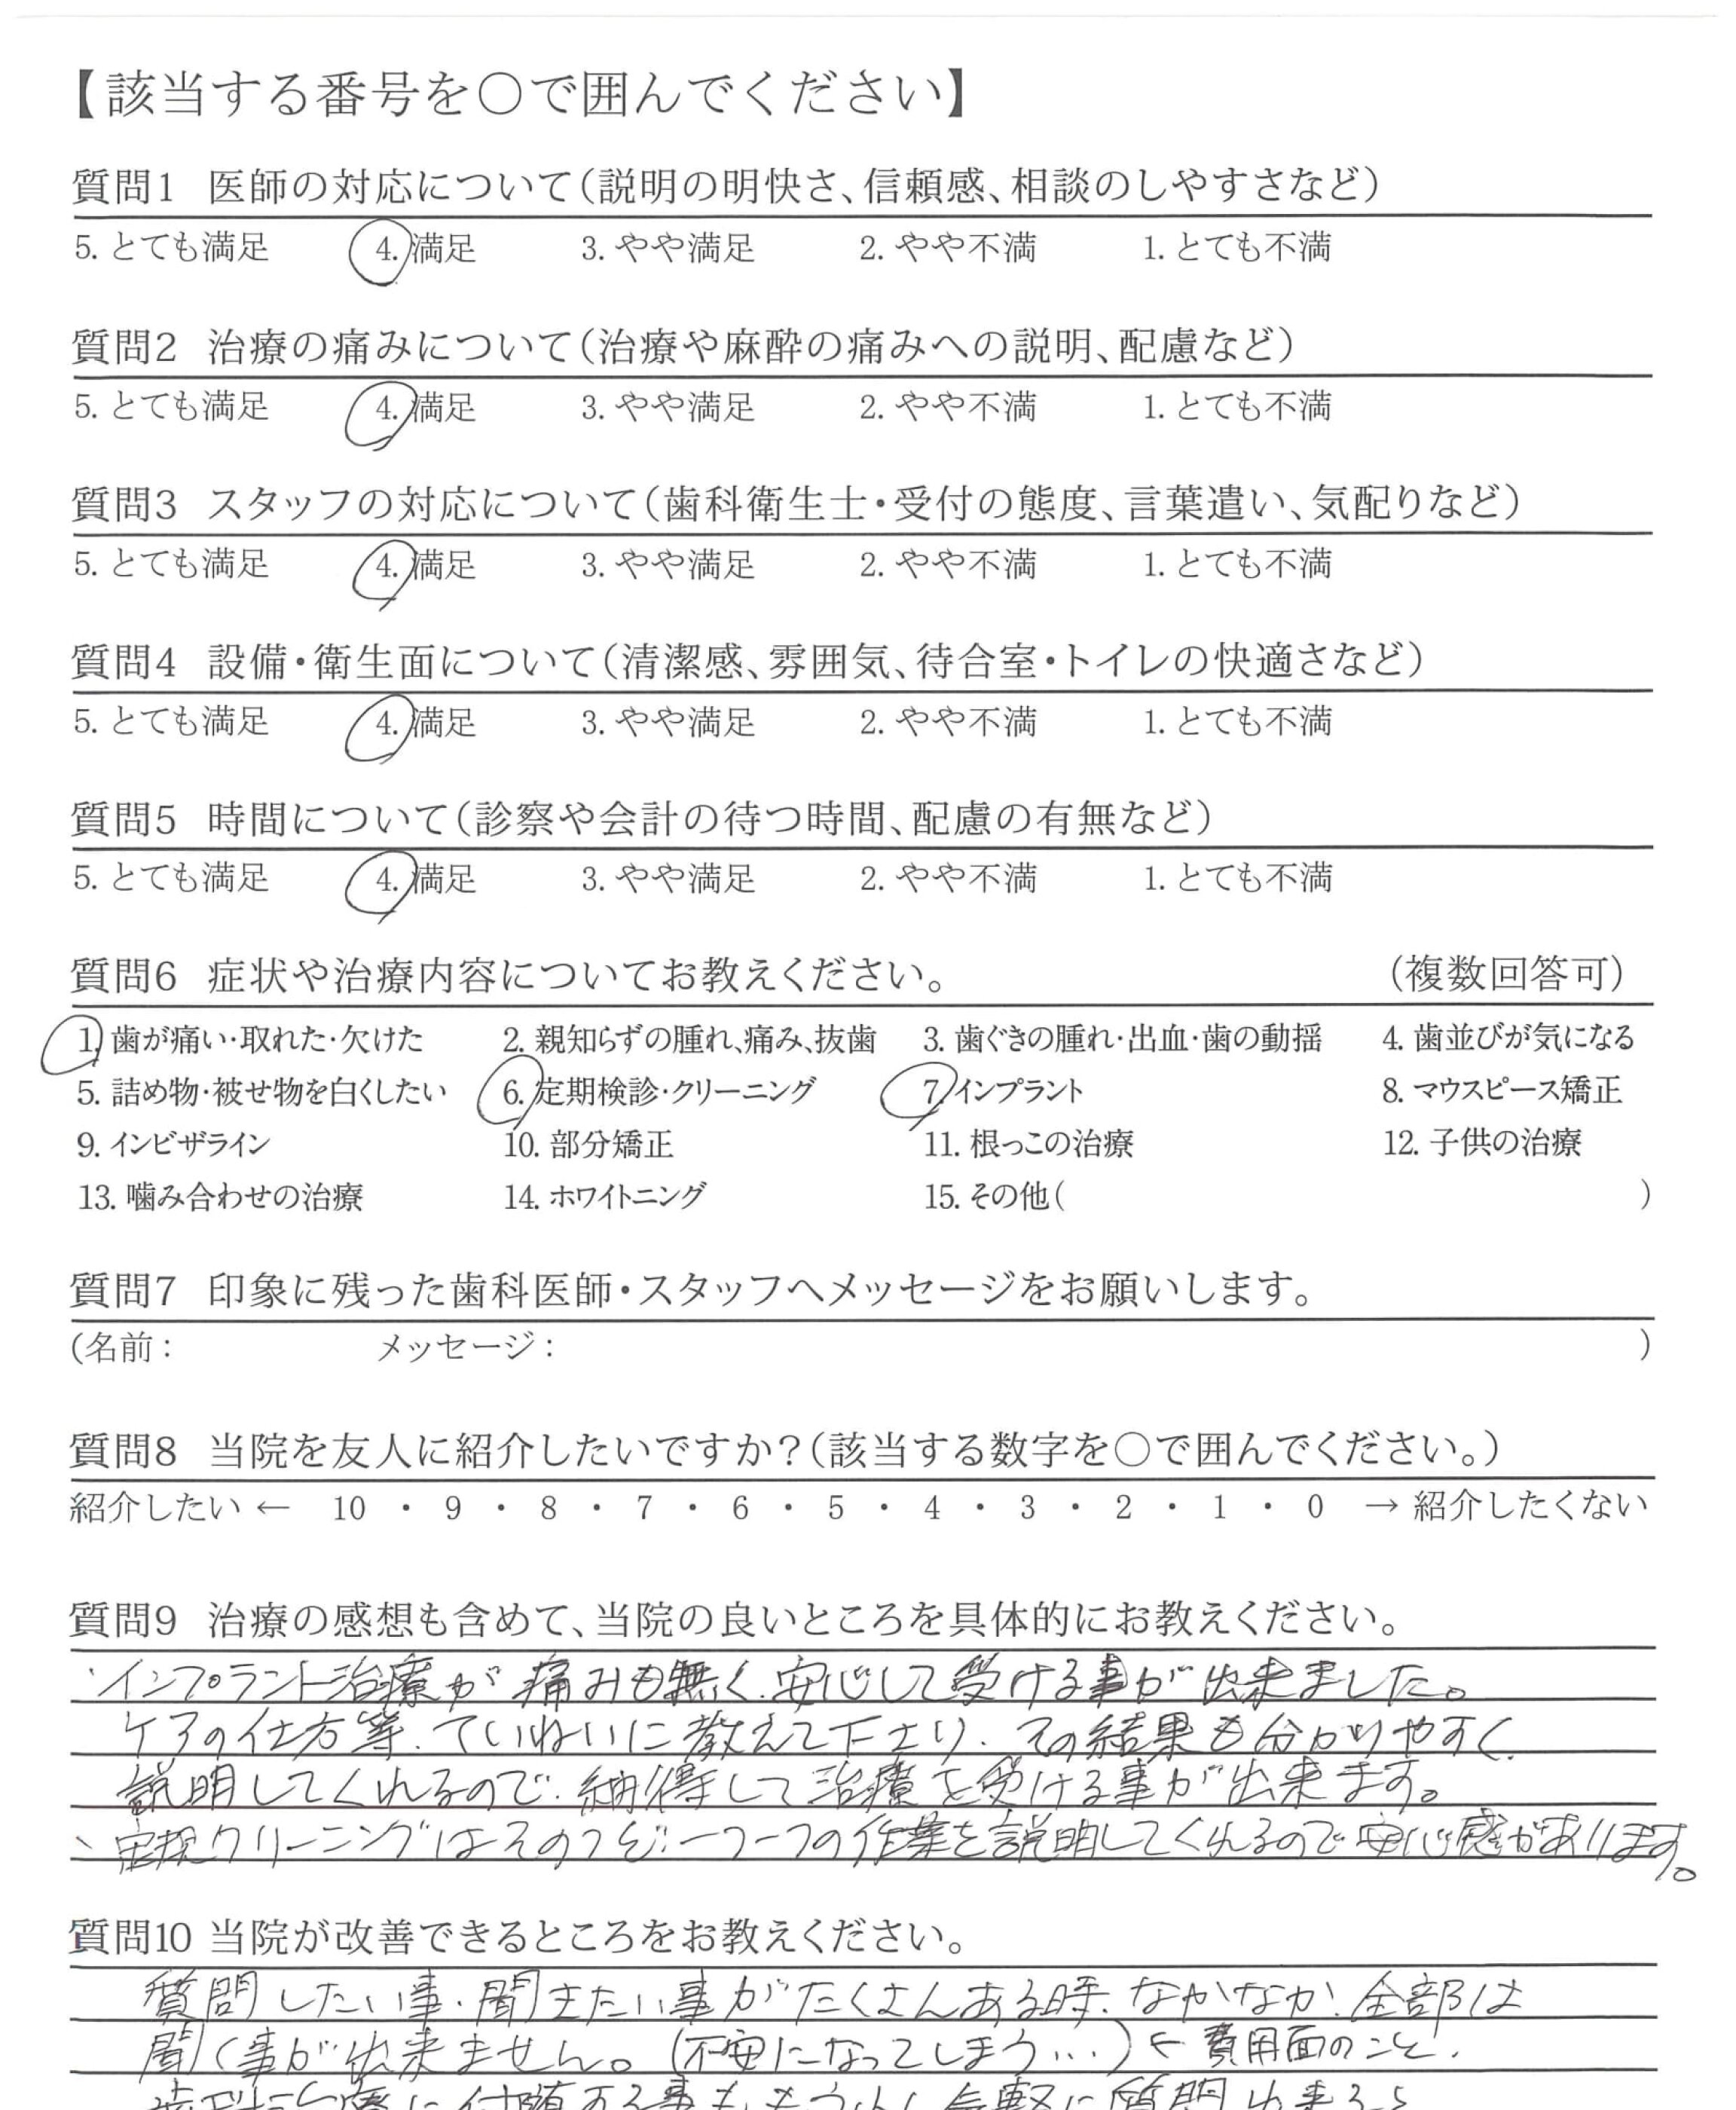 【該当する番号を○で囲んでください】
質問1 医師の対応について(説明の明快さ、信頼感、相談のしやすさなど)
5. とても満足 4. 満足 3. やや満足 2. やや不満 1. とても不満
質問2 治療の痛みについて(治療や麻酔の痛みへの説明、配慮など)
5. とても満足 4. 満足 3. やや満足 2. やや不満 1. とても不満
質問3 スタッフの対応について(歯科衛生士・受付の態度、言葉遣い、気配りなど)
5. とても満足 4. 満足 3. やや満足 2. やや不満 1. とても不満
質問4 設備・衛生面について(清潔感、雰囲気、待合室・トイレの快適さなど)
5. とても満足 4. 満足 3. やや満足 2. やや不満 1. とても不満
質問5 時間について(診察や会計の待つ時間、配慮の有無など)
5. とても満足 4. 満足 3. やや満足 2. やや不満 1. とても不満
質問6 症状や治療内容についてお教えください。 (複数回答可)
1. 歯が痛い・取れた・欠けた 2. 親知らずの腫れ、痛み、抜歯 3. 歯ぐきの腫れ・出血・歯の動揺 4. 歯並びが気になる
5. 詰め物・被せ物を白くしたい 6. 定期検診・クリーニング 7. インプラント 8. マウスピース矯正
9. インビザライン 10. 部分矯正 11. 根っこの治療 12. 子供の治療
13. 噛み合わせの治療 14. ホワイトニング 15. その他( )
質問7 印象に残った歯科医師・スタッフへメッセージをお願いします。
(名前: メッセージ: )
質問8 当院を友人に紹介したいですか?(該当する数字を○で囲んでください。)
紹介したい ← 10 ・ 9 ・ 8 ・ 7 ・ 6 ・ 5 ・ 4 ・ 3 ・ 2 ・ 1 ・ 0 → 紹介したくない
質問9 治療の感想も含めて、当院の良いところを具体的にお教えください。
・インプラント治療が痛みも無く、安心して受ける事が出来ました。
ケアの仕方等、ていねいに教えて下さり、その結果も分かりやすく
説明してくれるので、納得して治療を受ける事が出来ます。
、定規クリーニングはそのつど、一つ一つの作業を説明してくれるので安心感があります。
質問10 当院が改善できるところをお教えください。
質問したい事、聞きたい事がたくさんある時、なかなか、全部は
聞く事が出来ません。(不安になってしまう…)← 費用面のこと、